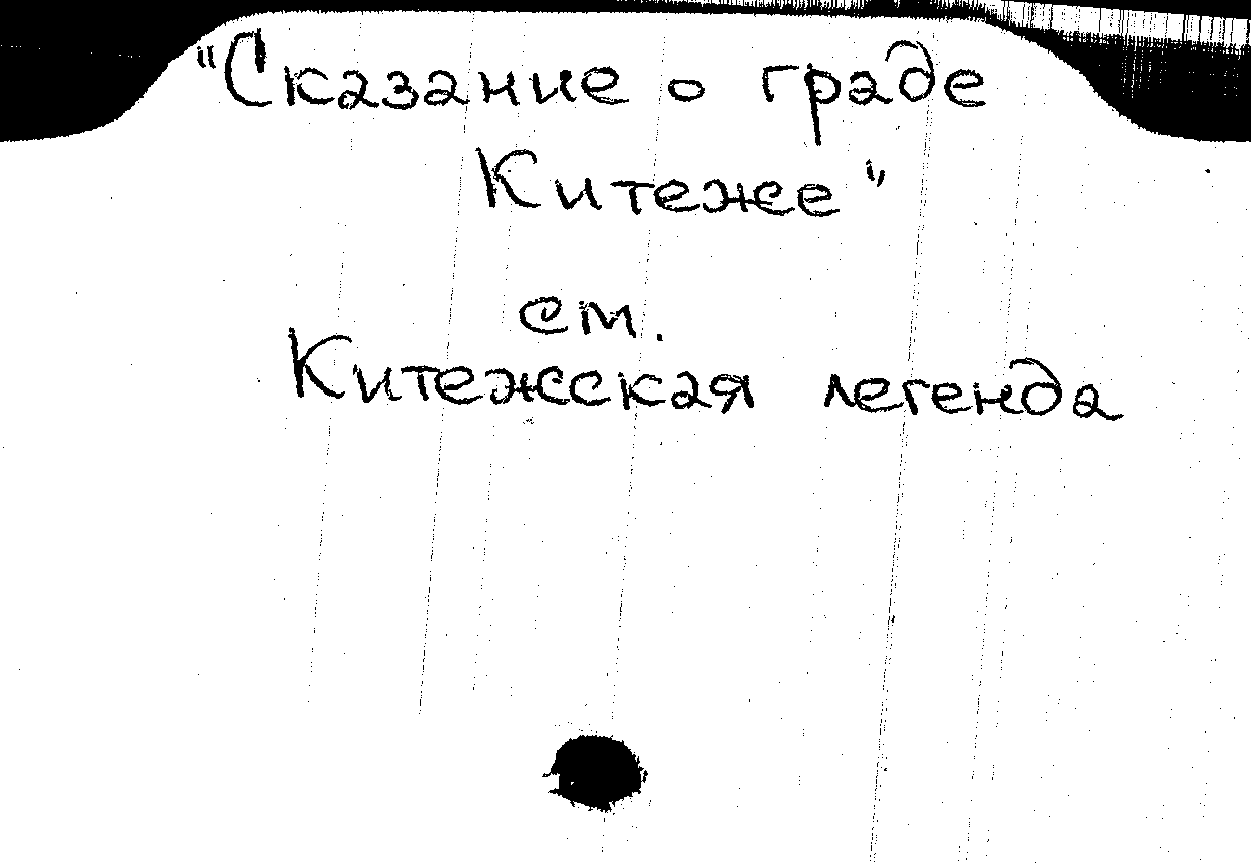 "Сказание о граде
Китеже"
см.
Китежская легенда